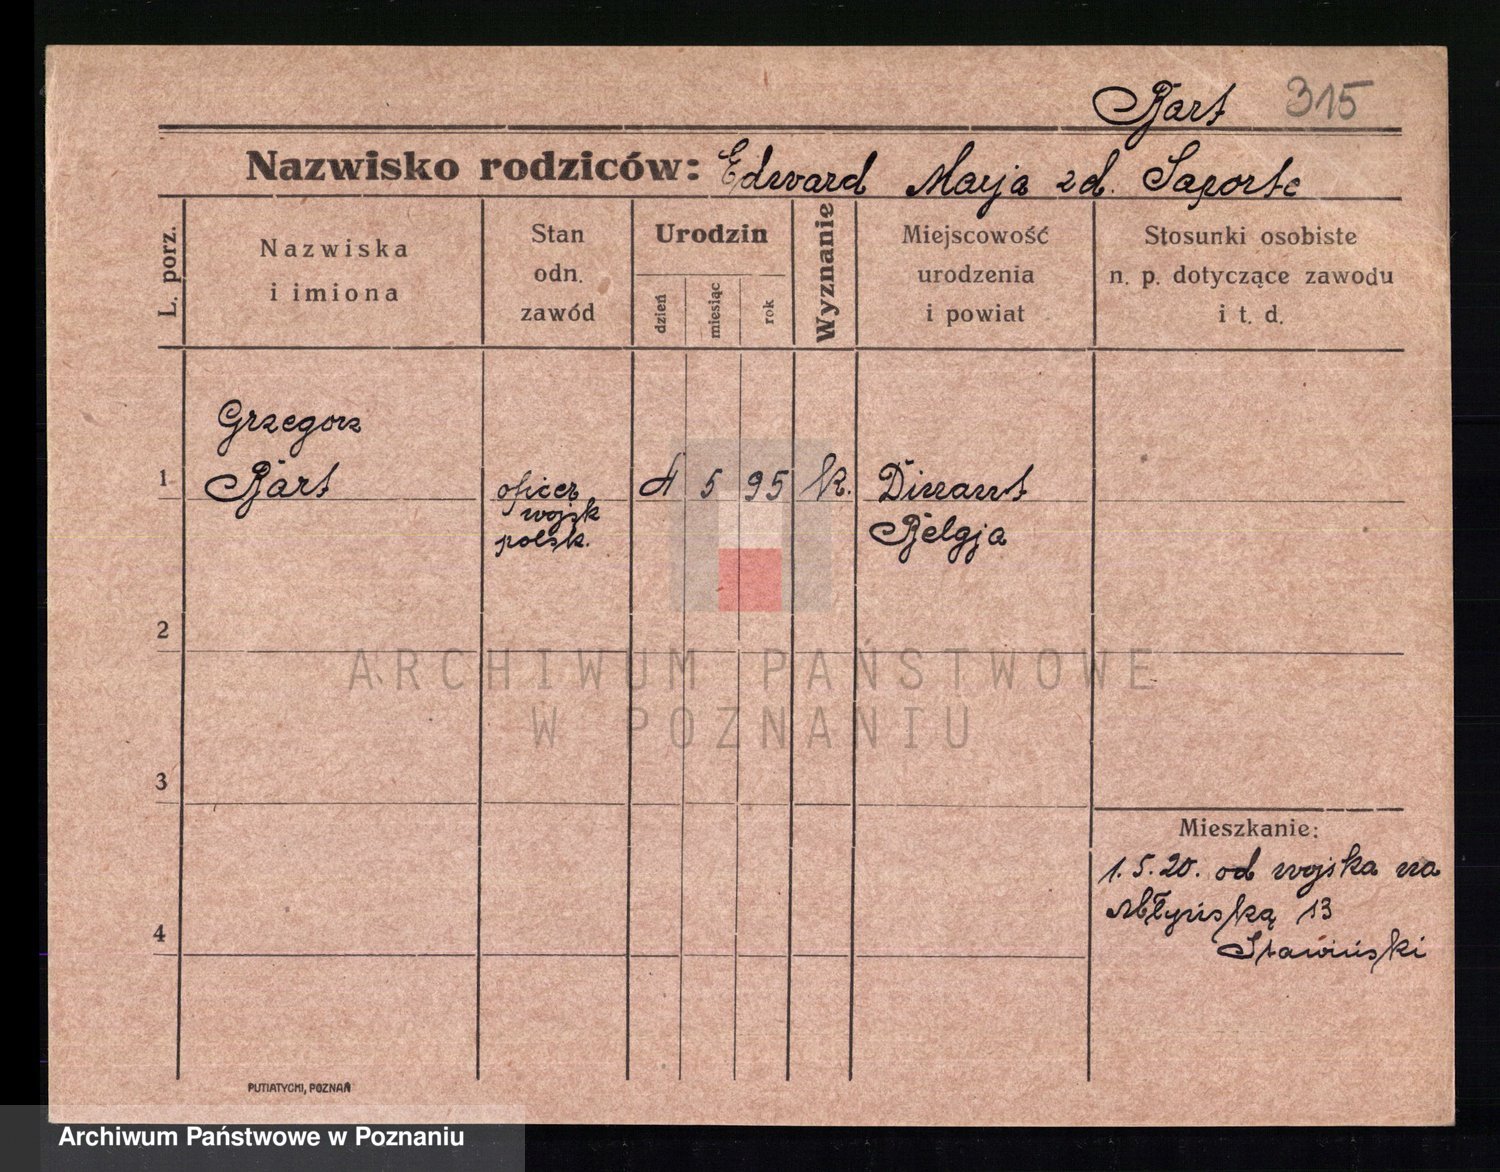 Bart 315
Nazwisko rodziców: Edward Marja zd. Saporte
L. porz.
Nazwiska
i imiona
Stan
odn.
zawód
Urodzin
dzień
miesiąc
rok
Wyznanie
Miejscowość
urodzenia
i powiat
Stosunki osobiste
n. p. dotyczące zawodu
i t. d.
Grzegorz
1 Bart
oficer
wojsk
polsk.
4 5 95 k. Dinant
Belgja
2
ARCHIWUM PAŃSTWOWE
W POZNANIU
3
Mieszkanie:
1.5.20. od wojska na
Młyńską 13
Stawiński
4
PUTIATYCKI, POZNAŃ
Archiwum Państwowe w Poznaniu